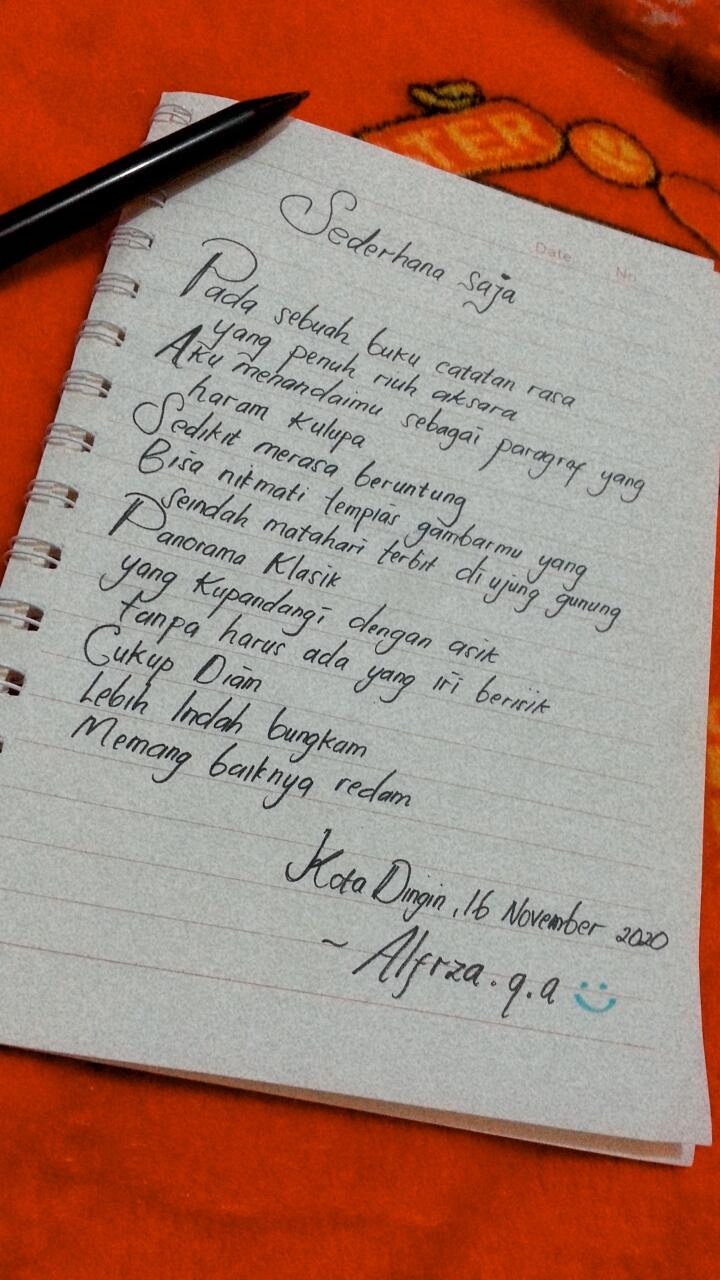 TER
Date
No
Sederhana saja
Pada sebuah buku catatan rasa
yang penuh riuh aksara
Aku menandaimu sebagai paragraf yang
haram kulupa
Sedikit merasa beruntung
Bisa nikmati tempias gambarmu yang
seindah matahari terbit di ujung gunung
Panorama Klasik
yang Kupandangi dengan asik
tanpa harus ada yang iri berisik
Cukup Diam
Lebih Indah bungkam
Memang baiknya redam
Kota Dingin, 16 November 2020
~ Alfrza.q.a